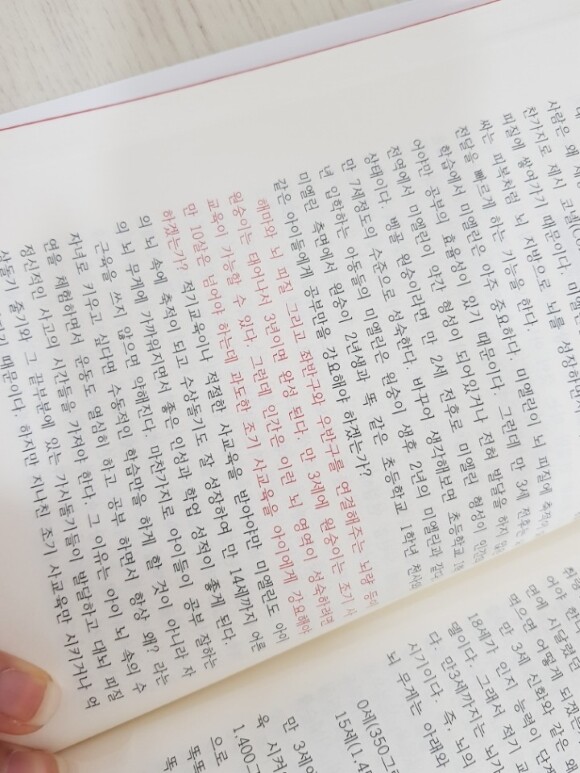 사람은 왜 세
찬가지로 제시 코넬(
피질에 쌓여가기 때문이다. 미엘
싸는 피복처럼 뇌 지방으로 뇌를 성장하면
전달을 빠르게 하는 기능을 한다.
학습에서 미엘린은 아주 중요하다. 미엘린이 뇌 피질에 축적
어야만 공부의 효율성이 있기 때문이다. 그런데 만 3세 전후
전연에서 미엘린이 약간 형성이 되어있거나 전혀 발달을 하지
상태이다. 벵골 원숭이라면 만 2세 전후로 미엘린 형성이 인간
만 7세정도의 수준으로 성숙한다. 바꾸어 생각해보면 초등학교 1학
년 입학하는 아동들의 미엘린은 원숭이 생후 2년의 미엘린과 같다.
미엘린 측면에서 원숭이 2년생과 똑 같은 초등학교 1학년 정서를
같은 아이들에게 공부만을 강요해야 하겠는가?
해마와 뇌 피질 그리고 좌반구와 우반구를 연결해주는 뇌량 등이
원숭이는 태어나서 3년이면 완성 된다. 만 3세에 원숭이는 조기 사
교육이 가능할 수 있다. 그런데 인간은 이런 뇌 영역이 성숙하려면
만 10살은 넘어야 하는데 과도한 조기 사교육을 아이에게 강요해야
하겠는가? 적기교육이나 적절한 사교육을 받아야만 미엘린도 아이
의 뇌 속에 축적이 되고 수상돌기도 잘 성장하여 만 14세까지 어른
의 뇌 무게에 가까워지면서 좋은 인성과 학업 성적이 좋게 된다.
근육을 쓰지 않으면 약해진다. 마찬가지로 아이들이 공부 잘하는
자녀로 키우고 싶다면 수동적인 학습만을 하게 할 것이 아니라 자
연을 체험하면서 운동도 열심히 하고 공부 하면서 항상 왜? 라는
정신적인 사고의 시간들을 가져야 한다. 그 이유는 아이 뇌 속의 수
상돌기 줄기와 그 끝부분에 있는 가시돌기들이 발달하고 대뇌 피질
때문이다. 하지만 지나친 조기 사교육만 시키거나 억
여야 한
면에 시달렸다
만 3세 신화와 같은 왜
먹으면 어떻게 되겠는
18세가 인지 능력이 단계
말이다. 그래서 적기 교
시기이다. 즉, 뇌의
다. 만3세까지는 뇌가
뇌 무게는 아래와
0세(350그
15세(1.4
만 3세에
육 시켜
1,400그
으로
똑똑